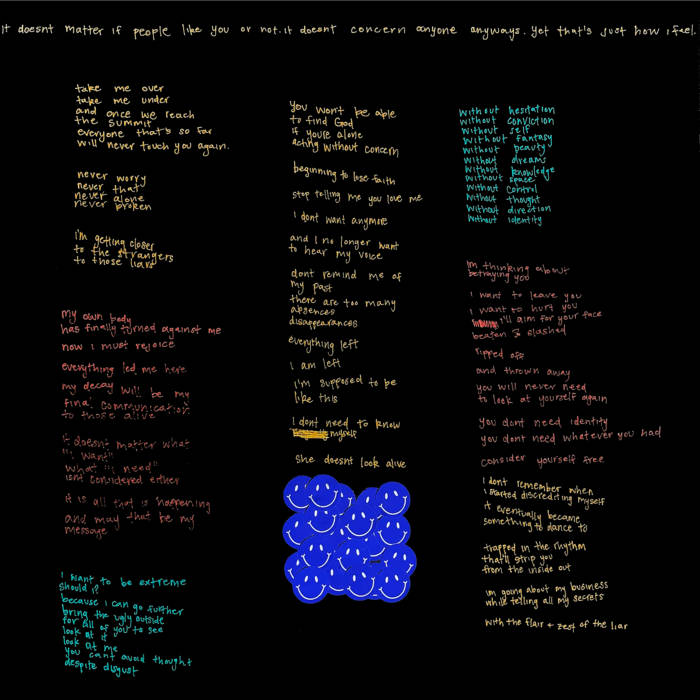 it doesnt matter if people like you or not. it doesnt concern anyone anyways. yet that's just how i feel.
take me over
take me under
and once we reach
the summit
everyone that's so far
will never touch you again.
never worry
never that
never alone
never broken
i'm getting closer
to the strangers
to those liars
my own body
has finally turned against me
now i must rejoice
everything led me here
my decay will be my
final communication
to those alive
it doesnt matter what
"i want"
what "i need"
isnt considered either
it is all that is happening
and may that be my
message
i want to be extreme
should i?
because i can go further
bring the ugly outside
for all of you to see
look at it
look at me
you cant avoid thought
despite disgust
you won't be able
to find God
if you're alone
acting without concern
beginning to lose faith
stop telling me you love me
i dont want anymore
and i no longer want
to hear my voice
dont remind me of
my past
there are too many
absences
disappearances
everything left
i am left
i'm supposed to be
like this
i dont need to know
myself
she doesnt look alive
without hesitation
without conviction
without self
without fantasy
without beauty
without dreams
without knowledge
without space
without control
without thought
without direction
without identity
im thinking about
betraying you
i want to leave you
i want to hurt you
i'll aim for your face
beaten & slashed
ripped off
and thrown away
you will never need
to look at yourself again
you dont need identity
you dont need whatever you had
consider yourself free
i dont remember when
i started discrediting myself
it eventually became
something to dance to
trapped in the rhythm
that'll strip you
from the inside out
im going about my business
while telling all my secrets
with the flair + zest of the liar